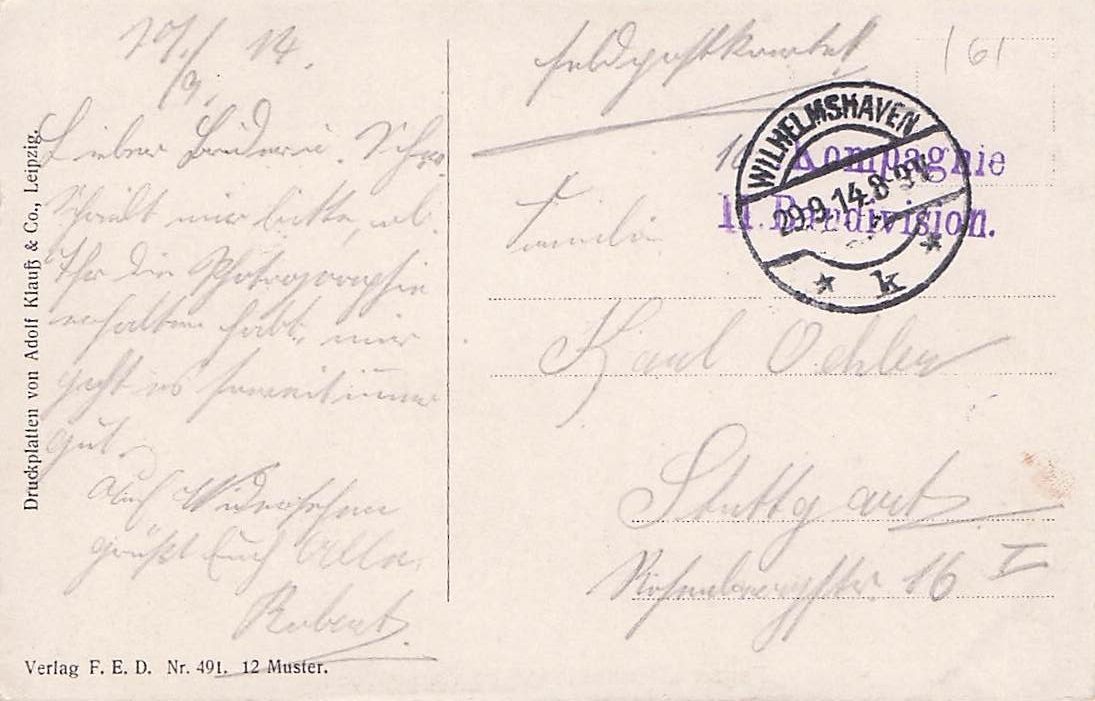 14.
9.
Feldpostkarte!
161
WILHELMSHAVEN
29.9.14.8-9V.
* k *
Kompagnie
II. division.
Lieber Schw.
Schreibt mir bitte, ob
Ihr die Photographie
erhalten habt, mir
geht es soweit immer
gut.
Auf Wiedersehen
grüßt Euch Alle
Robert.
Familie
Karl Oehler
Stuttgart
Rosenbergstr. 16 I
Druckplatten von Adolf Klauß & Co., Leipzig.
Verlag F. E. D. Nr. 491. 12 Muster.